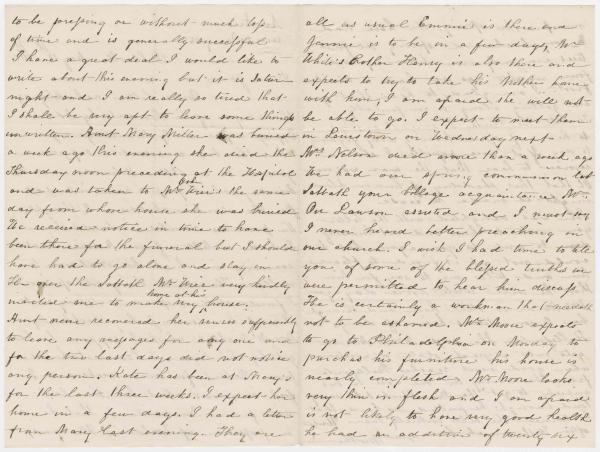 to be pressing on without much loss
of time and is generally successful
I have a great deal I would like to
write about this evening but it is Satur
night and I am really so tired that
I shall be very apt to leave some things
unwritten. Aunt Mary Miller was buried
a week ago this evening she died the
Thursday noon preceeding at the Hospital
and was taken to Mr the same
day from whose house she was buried
We received notice in time to have
been there for the funeral but I should
have had to go alone and stay in
over the Sabbath Mr very kindly
invited me to make my home at his house.
Aunt never recovered her senses sufficiently
to leave any messages for any one and
for the two last days did not notice
any person. Kate has been at Mary's
for the last three weeks. I expect her
home in a few days. I had a letter
from Mary last evening. They are
all as usual Emmie is there and
Jennie is to be in a few days, Mr
White's Brother Henry is also there and
expects to try to take his Mother home
with him, I am afraid she will not
be able to go. I expect to meet them
in Lewistown on Wednesday next
Mrs Nelson died more than a week ago
We had our spring communion last
Sabbath your College acquaintance Mr.
Orr Lawson assisted and I must say
I never heard better preaching in
our church. I wish I had time to tell
you of some of the blessed truths we
were permitted to hear him discuss
He is certainly a workman that needeth
not to be ashamed. Mr Moore expects
to go to Philadelphia on Monday to
purchas his furniture his house is
nearly completed Mr Moore looks
very thin in flesh and I am afraid
is not likely to have very good health
he had an addition of twenty six